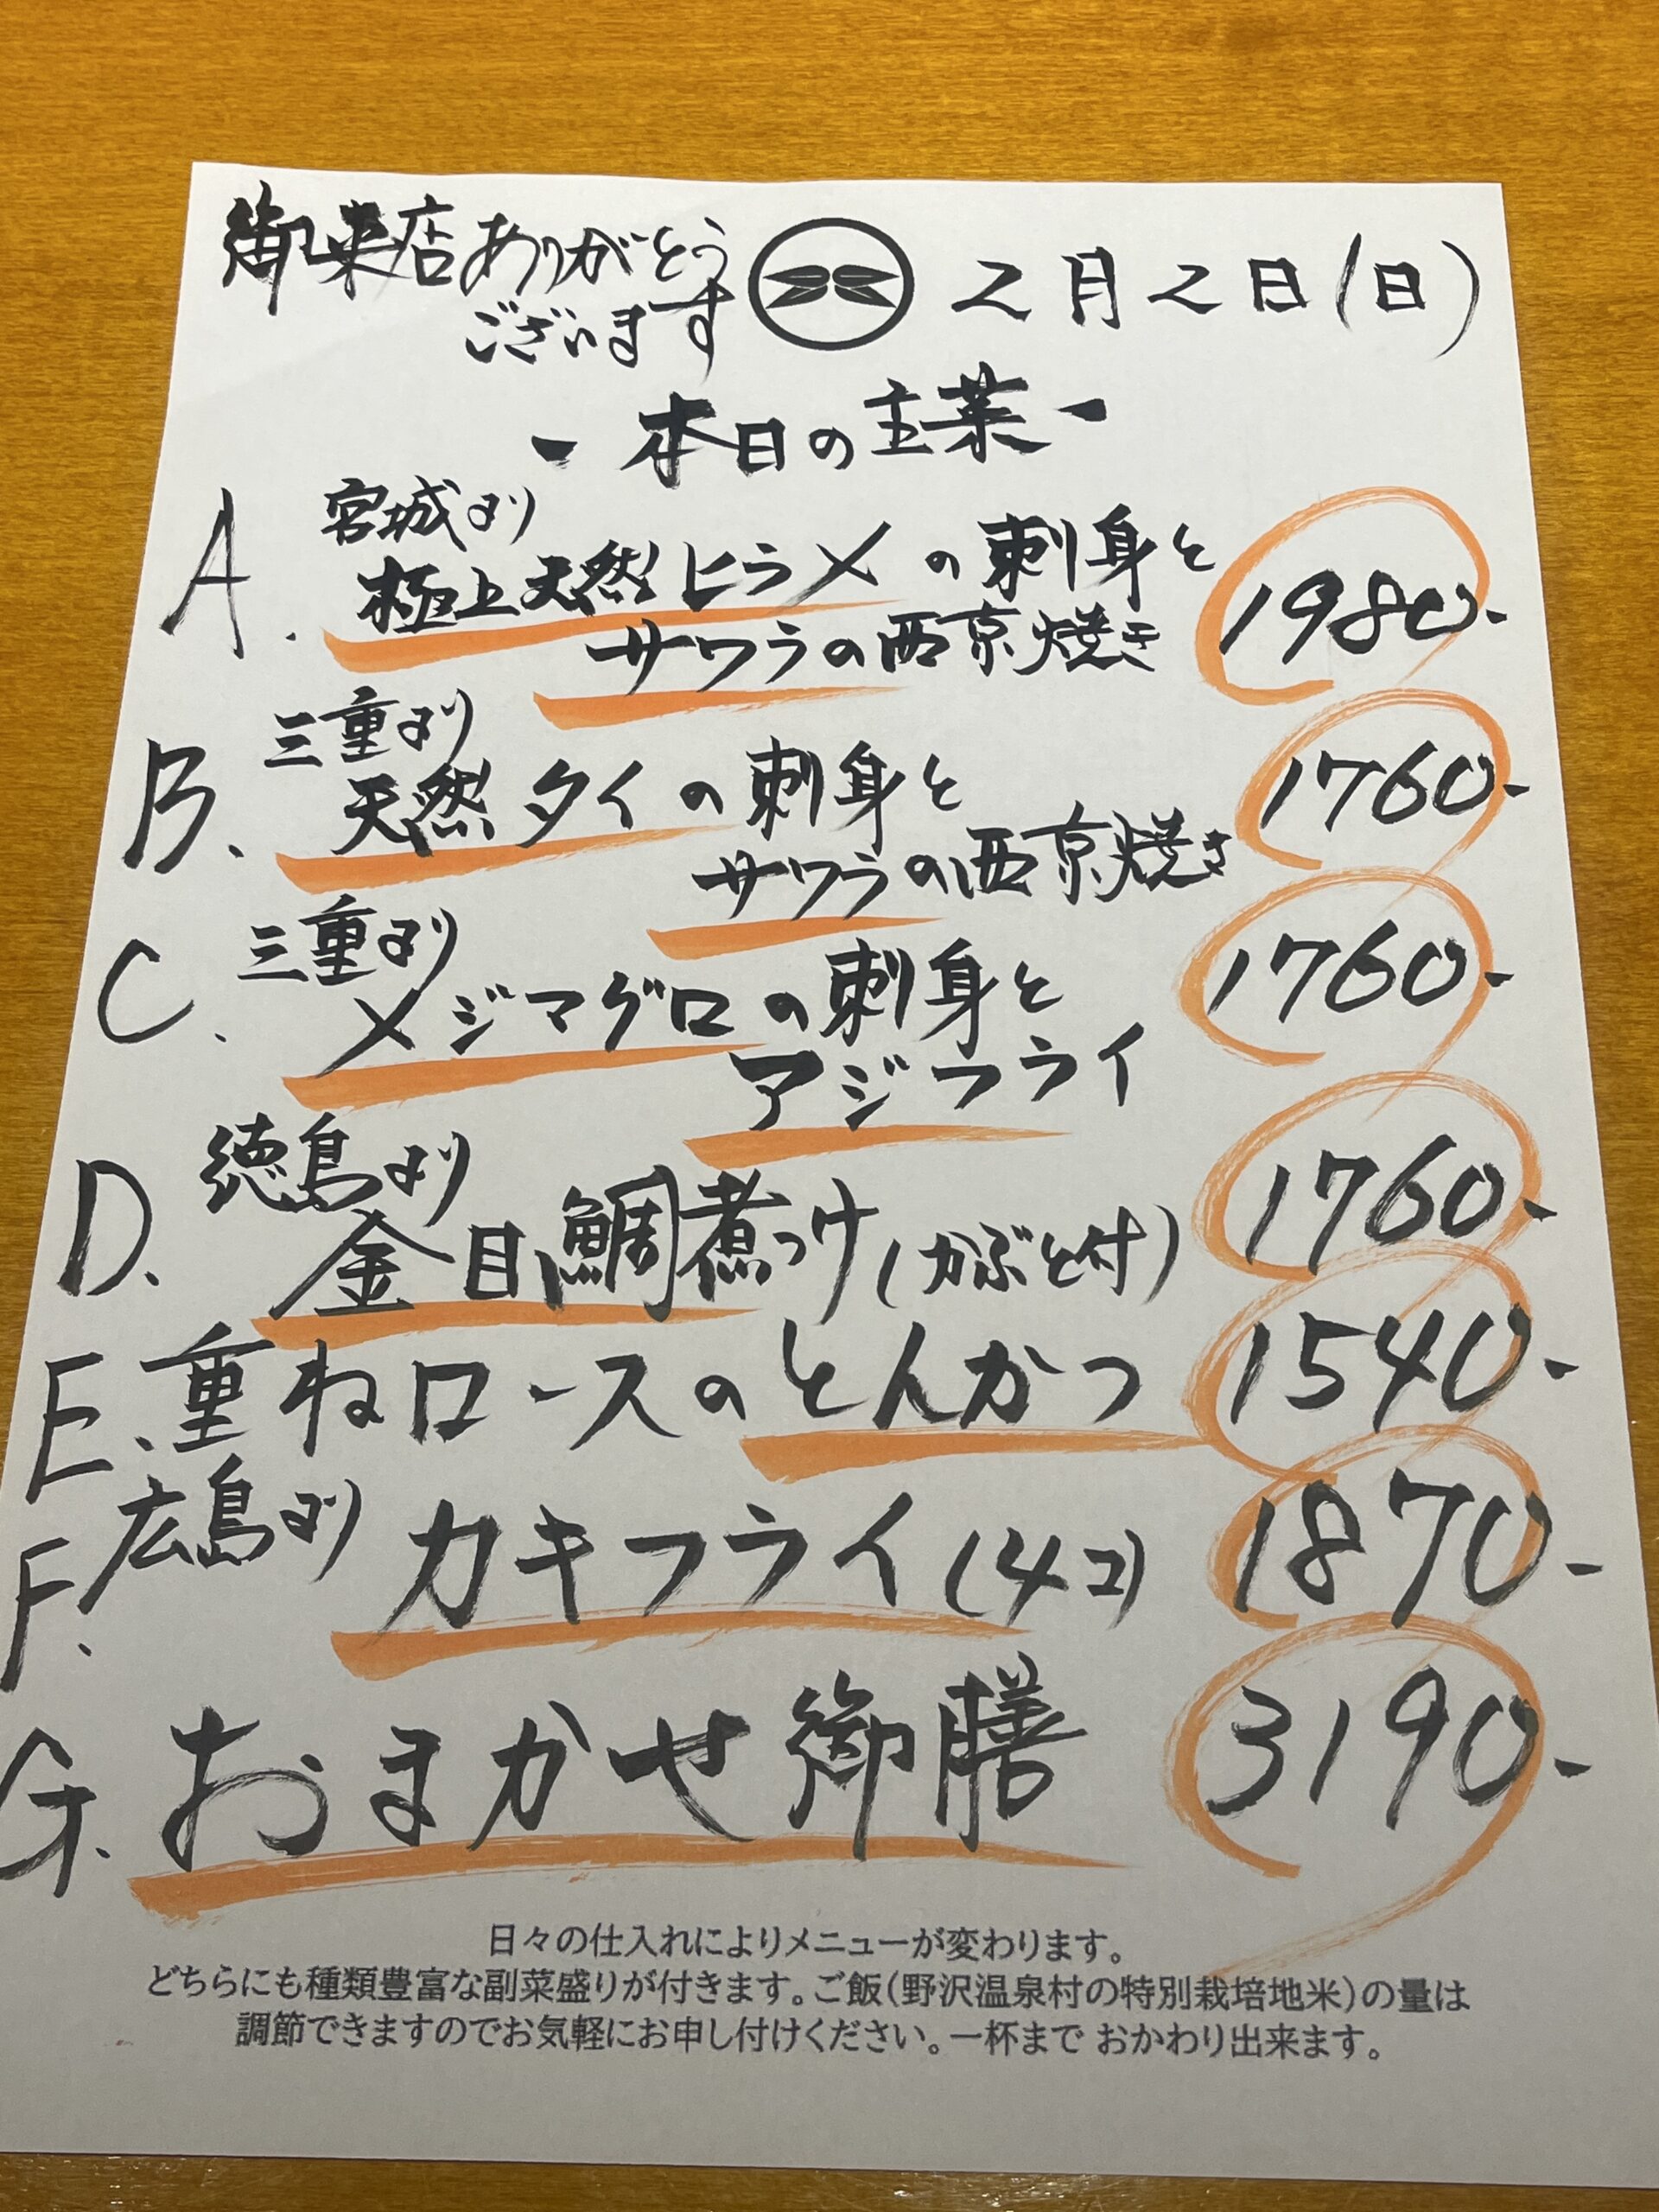 御来店ありがとう
ございます
2月2日(日)
- 本日の主菜 -
A. 宮城より
極上天然ヒラメの刺身と
サワラの西京焼き
1980-
B. 三重より
天然タイの刺身と
サワラの西京焼き
1760-
C. 三重より
メジマグロの刺身と
アジフライ
1760-
D. 徳島より
金目鯛煮つけ(かぶと付)
1760-
E. 重ねロースのとんかつ
1540-
F. 広島より
カキフライ(4コ)
1870-
G. おまかせ御膳
3190-
日々の仕入れによりメニューが変わります。
どちらにも種類豊富な副菜盛りが付きます。ご飯(野沢温泉村の特別栽培地米)の量は
調節できますのでお気軽にお申し付けください。一杯まで おかわり出来ます。